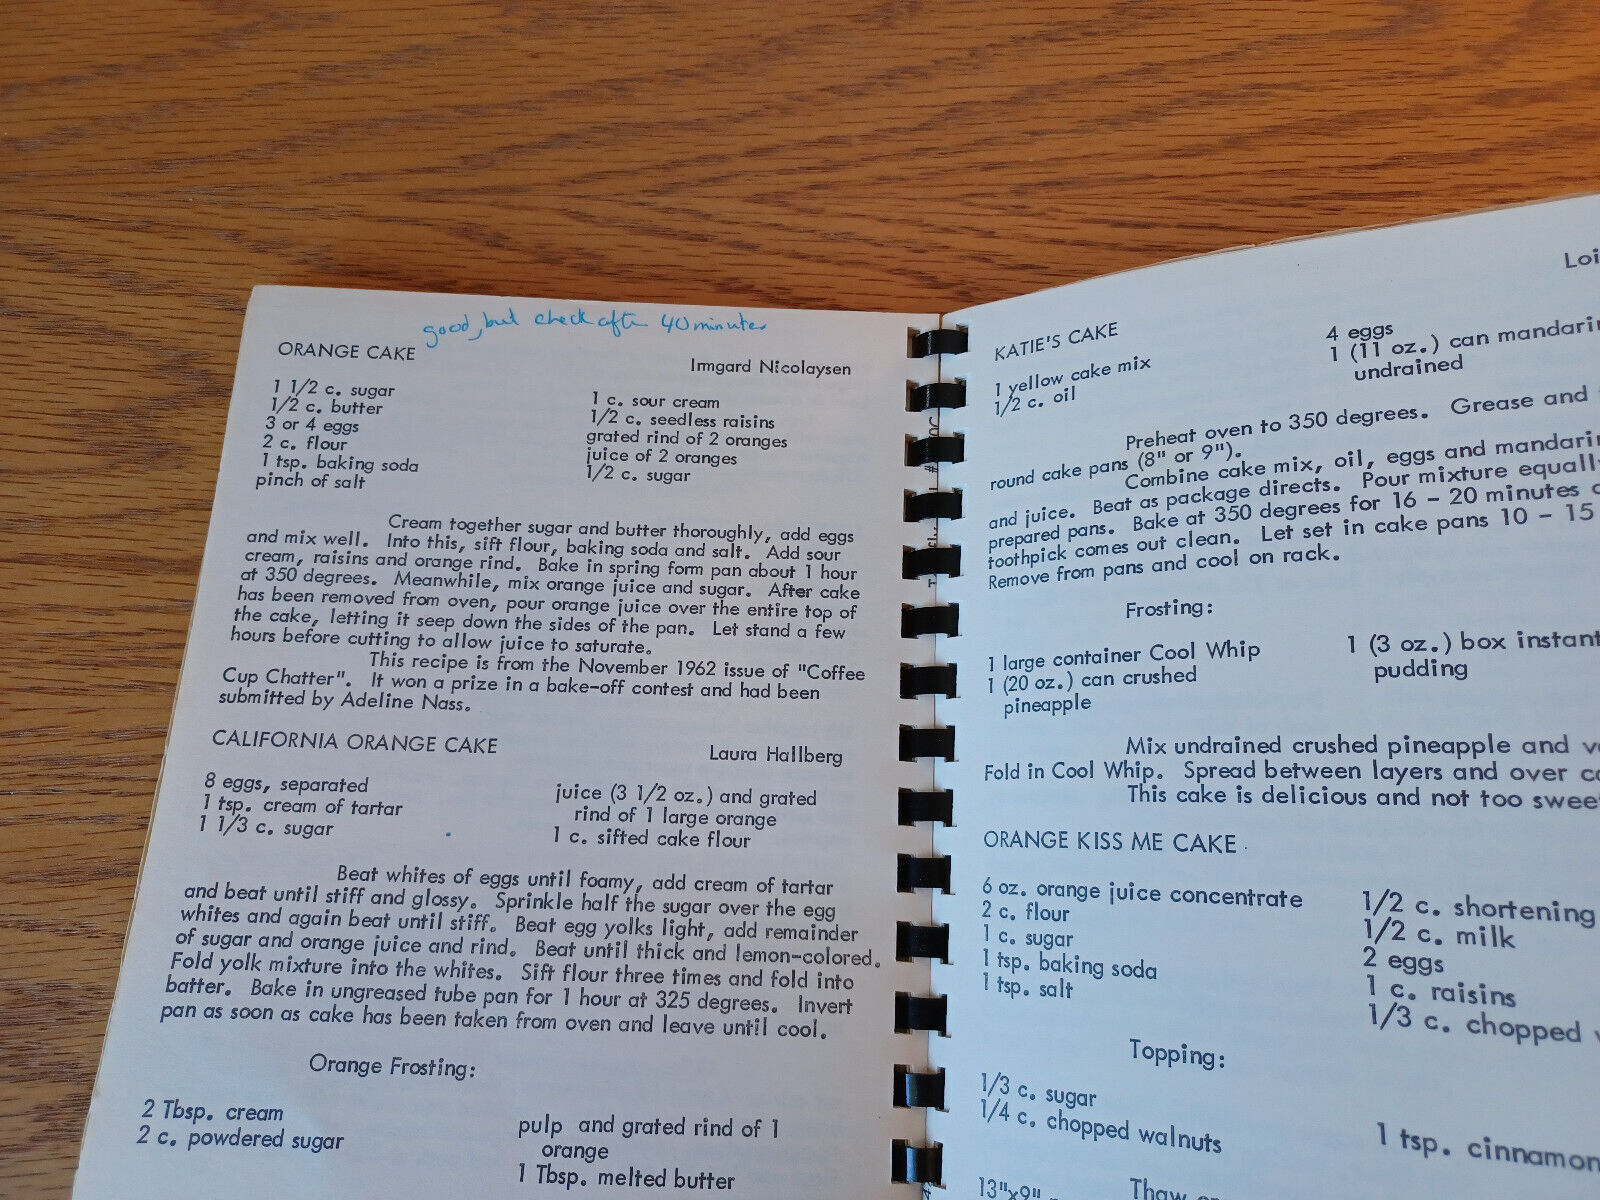 good, but check after 40 minutes
ORANGE CAKE
Irmgard Nicolaysen
1 1/2 c. sugar
1/2 c. butter
3 or 4 eggs
2 c. flour
1 tsp. baking soda
pinch of salt
1 c. sour cream
1/2 c. seedless raisins
grated rind of 2 oranges
juice of 2 oranges
1/2 c. sugar
Cream together sugar and butter thoroughly, add eggs
and mix well. Into this, sift flour, baking soda and salt. Add sour
cream, raisins and orange rind. Bake in spring form pan about 1 hour
at 350 degrees. Meanwhile, mix orange juice and sugar. After cake
has been removed from oven, pour orange juice over the entire top of
the cake, letting it seep down the sides of the pan. Let stand a few
hours before cutting to allow juice to saturate.
This recipe is from the November 1962 issue of "Coffee
Cup Chatter". It won a prize in a bake-off contest and had been
submitted by Adeline Nass.
CALIFORNIA ORANGE CAKE
Laura Hallberg
8 eggs, separated
1 tsp. cream of tartar
1 1/3 c. sugar
juice (3 1/2 oz.) and grated
rind of 1 large orange
1 c. sifted cake flour
Beat whites of eggs until foamy, add cream of tartar
and beat until stiff and glossy. Sprinkle half the sugar over the egg
whites and again beat until stiff. Beat egg yolks light, add remainder
of sugar and orange juice and rind. Beat until thick and lemon-colored.
Fold yolk mixture into the whites. Sift flour three times and fold into
batter. Bake in ungreased tube pan for 1 hour at 325 degrees. Invert
pan as soon as cake has been taken from oven and leave until cool.
Orange Frosting:
2 Tbsp. cream
2 c. powdered sugar
pulp and grated rind of 1
orange
1 Tbsp. melted butter
Loi
KATIE'S CAKE
1 yellow cake mix
1/2 c. oil
4 eggs
1 (11 oz.) can mandarin
undrained
Preheat oven to 350 degrees. Grease and
round cake pans (8" or 9").
Combine cake mix, oil, eggs and mandarin
and juice. Beat as package directs. Pour mixture equally
prepared pans. Bake at 350 degrees for 16 - 20 minutes
toothpick comes out clean. Let set in cake pans 10 - 15
Remove from pans and cool on rack.
Frosting:
1 large container Cool Whip
1 (20 oz.) can crushed
pineapple
1 (3 oz.) box instant
pudding
Mix undrained crushed pineapple and
Fold in Cool Whip. Spread between layers and over
This cake is delicious and not too sweet
ORANGE KISS ME CAKE
6 oz. orange juice concentrate
2 c. flour
1 c. sugar
1 tsp. baking soda
1 tsp. salt
1/2 c. shortening
1/2 c. milk
2 eggs
1 c. raisins
1/3 c. chopped
Topping:
1/3 c. sugar
1/4 c. chopped walnuts
1 tsp. cinnamon
13"x9"
Thaw